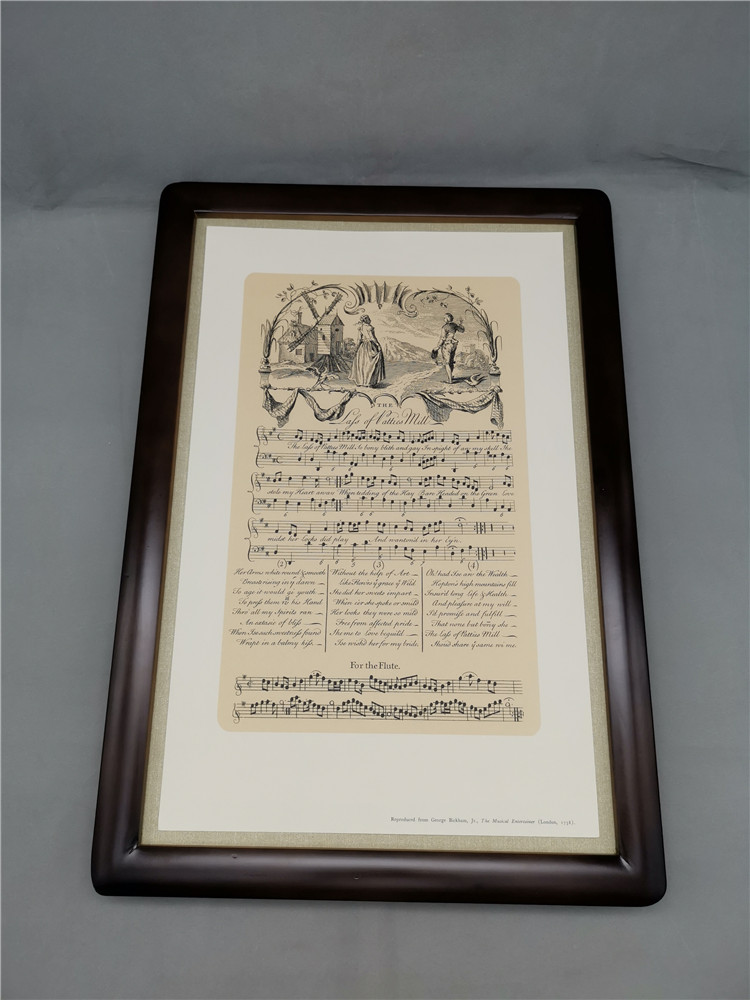 THE
Lass of Patties Mill
The lass of Patties Mill So bony blith and gay In spight of any skill She
stole my Heart away When tedding of the Hay Bare Headed on the Green Love
midst her Locks did play And wanton'd in her Eyn
(2) (3) (4)
Her Arms white round & smooth
Breasts rising in yͤ dawn
To age it would give youth
To press them wͭ his Hand
Thro' all my Spirits ran
An extasie of bliss
When I such sweetness found
Wrapt in a balmy kiss.
Without the help of Art
Like Flow'rs yͭ grace yͤ Wild
She did her sweets impart
When e'er she spoke or smil'd
Her looks they were so mild
Free from affected pride
She me to Love beguil'd
I wish'd her for my bride.
Oh had I all the Wealth
Hoptons high mountains fill
Insur'd long Life & Health
And pleasure at my will
I'd promise and fulfill
That none but bony she
The Lass of Patties Mill
Shou'd share yͤ same wͭ me.
For the Flute.
Reproduced from George Bickham, Jr., The Musical Entertainer (London, 1736).